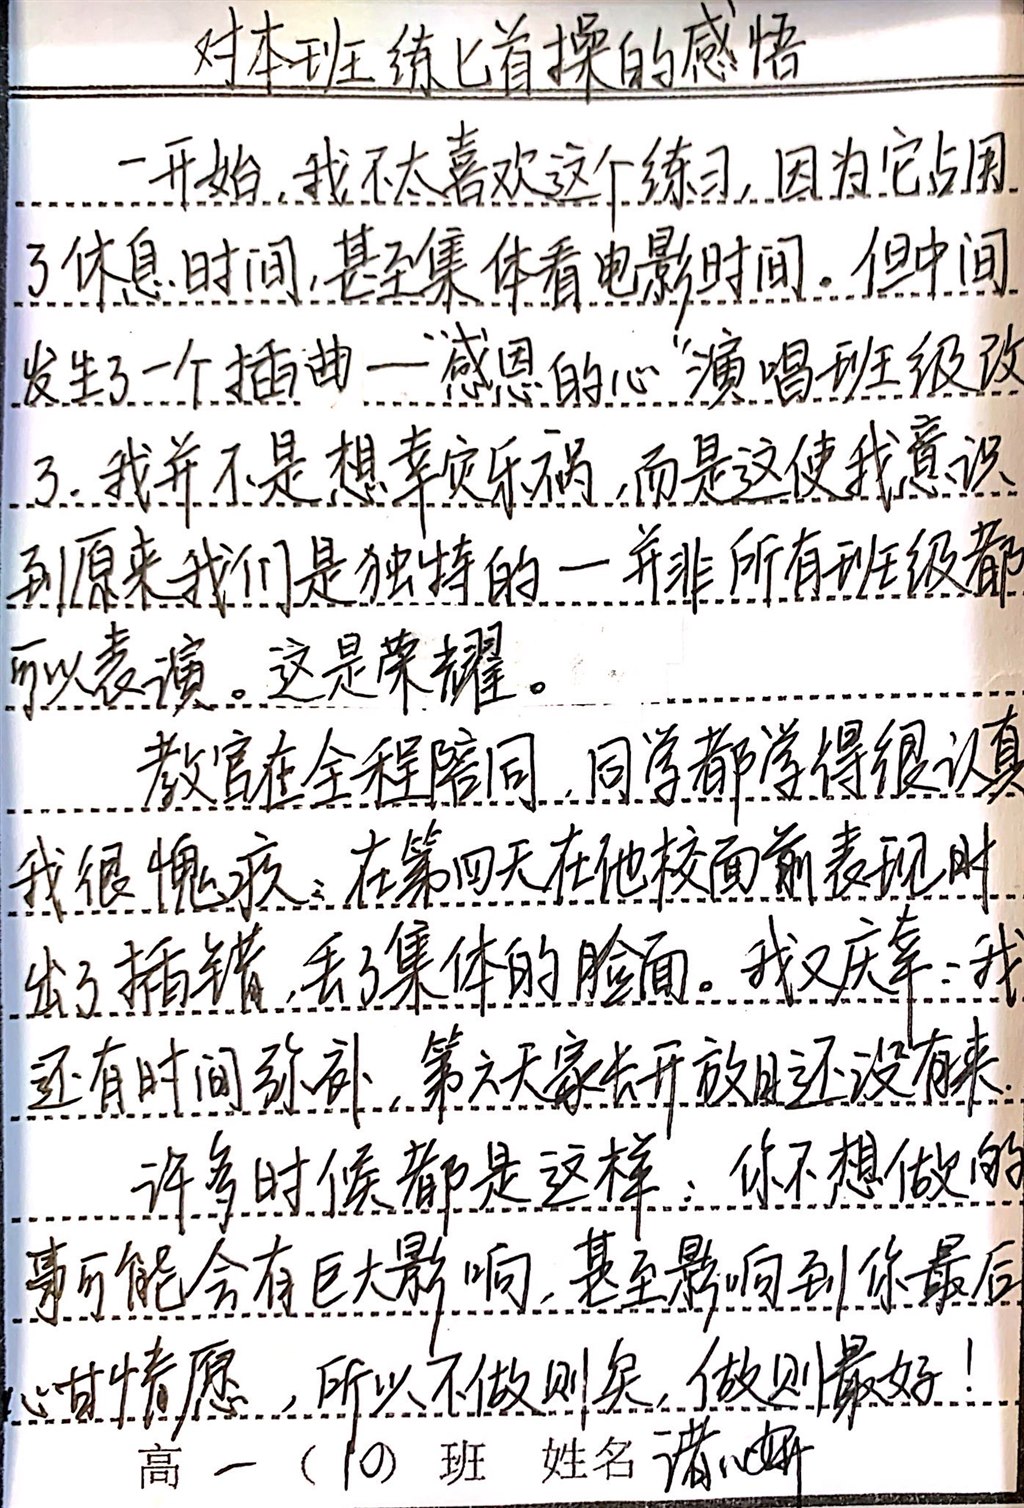 对本班练匕首操的感悟
一开始,我不太喜欢这个练习,因为它占用
了休息时间,甚至集体看电影时间。但中间
发生了一个插曲—“感恩的心”演唱班级改
了.我并不是想幸灾乐祸,而是这使我意识
到原来我们是独特的—并非所有班级都
可以表演。这是荣耀。
教官在全程陪同,同学都学得很认真
我很愧疚:在第四天在他校面前表现时
出了插错,丢了集体的脸面。我又庆幸:我
还有时间弥补,第六天家长开放日还没有来.
许多时候都是这样:你不想做的
事可能会有巨大影响,甚至影响到你最后
心甘情愿,所以不做则矣,做则最好!
高一(10)班 姓名 诸心妍